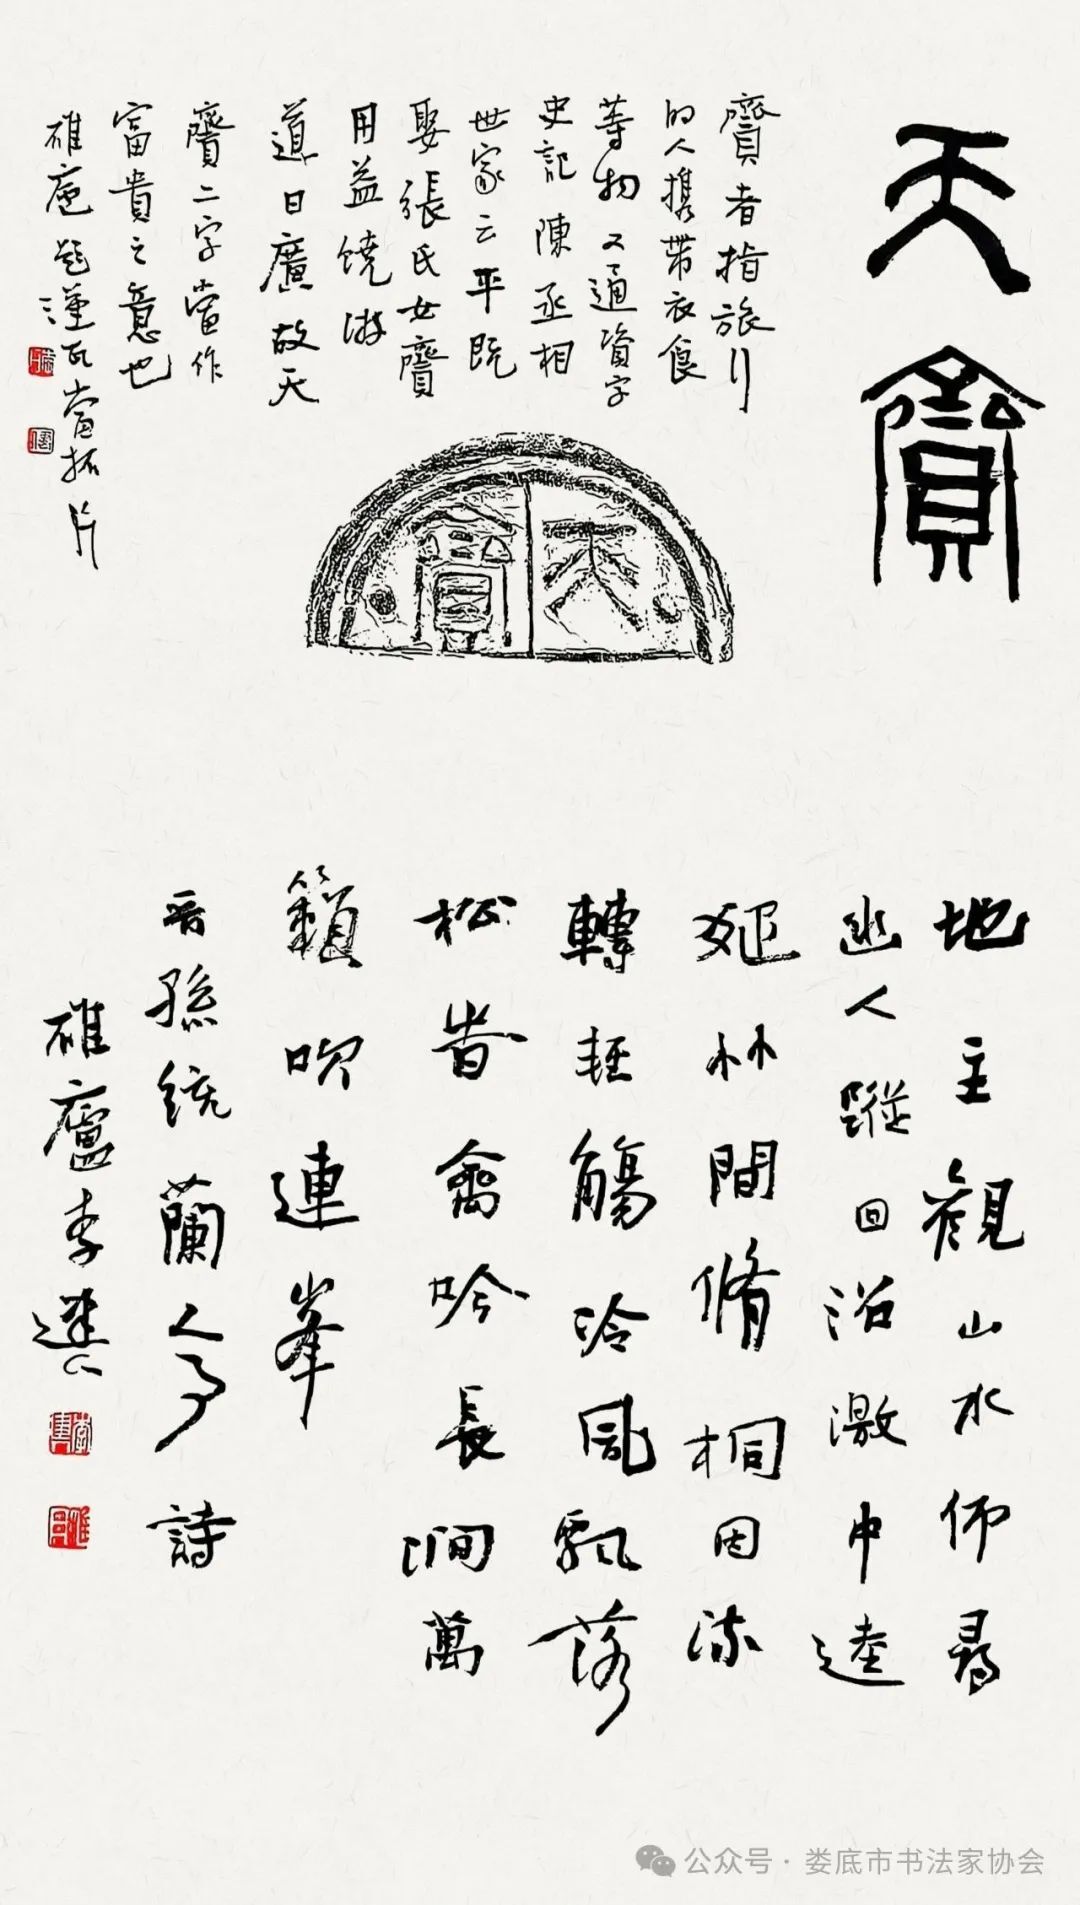 天齎
齎者指旅行
的人携帶衣食
等物又通資字
史記陳丞相
世家云平既
娶張氏女齎
用益饒游
道日廣故天
齎二字當作
富貴之意也
碓庵題漢瓦當拓片
天齎
地主觀山水仰尋
幽人蹤回沼激中逵
疏林間脩桐因流
轉輕觴冷風飄落
松時禽吟長澗萬
籟吹連峯
晋孫統蘭亭詩
碓廬李
公众号·娄底市书法家协会